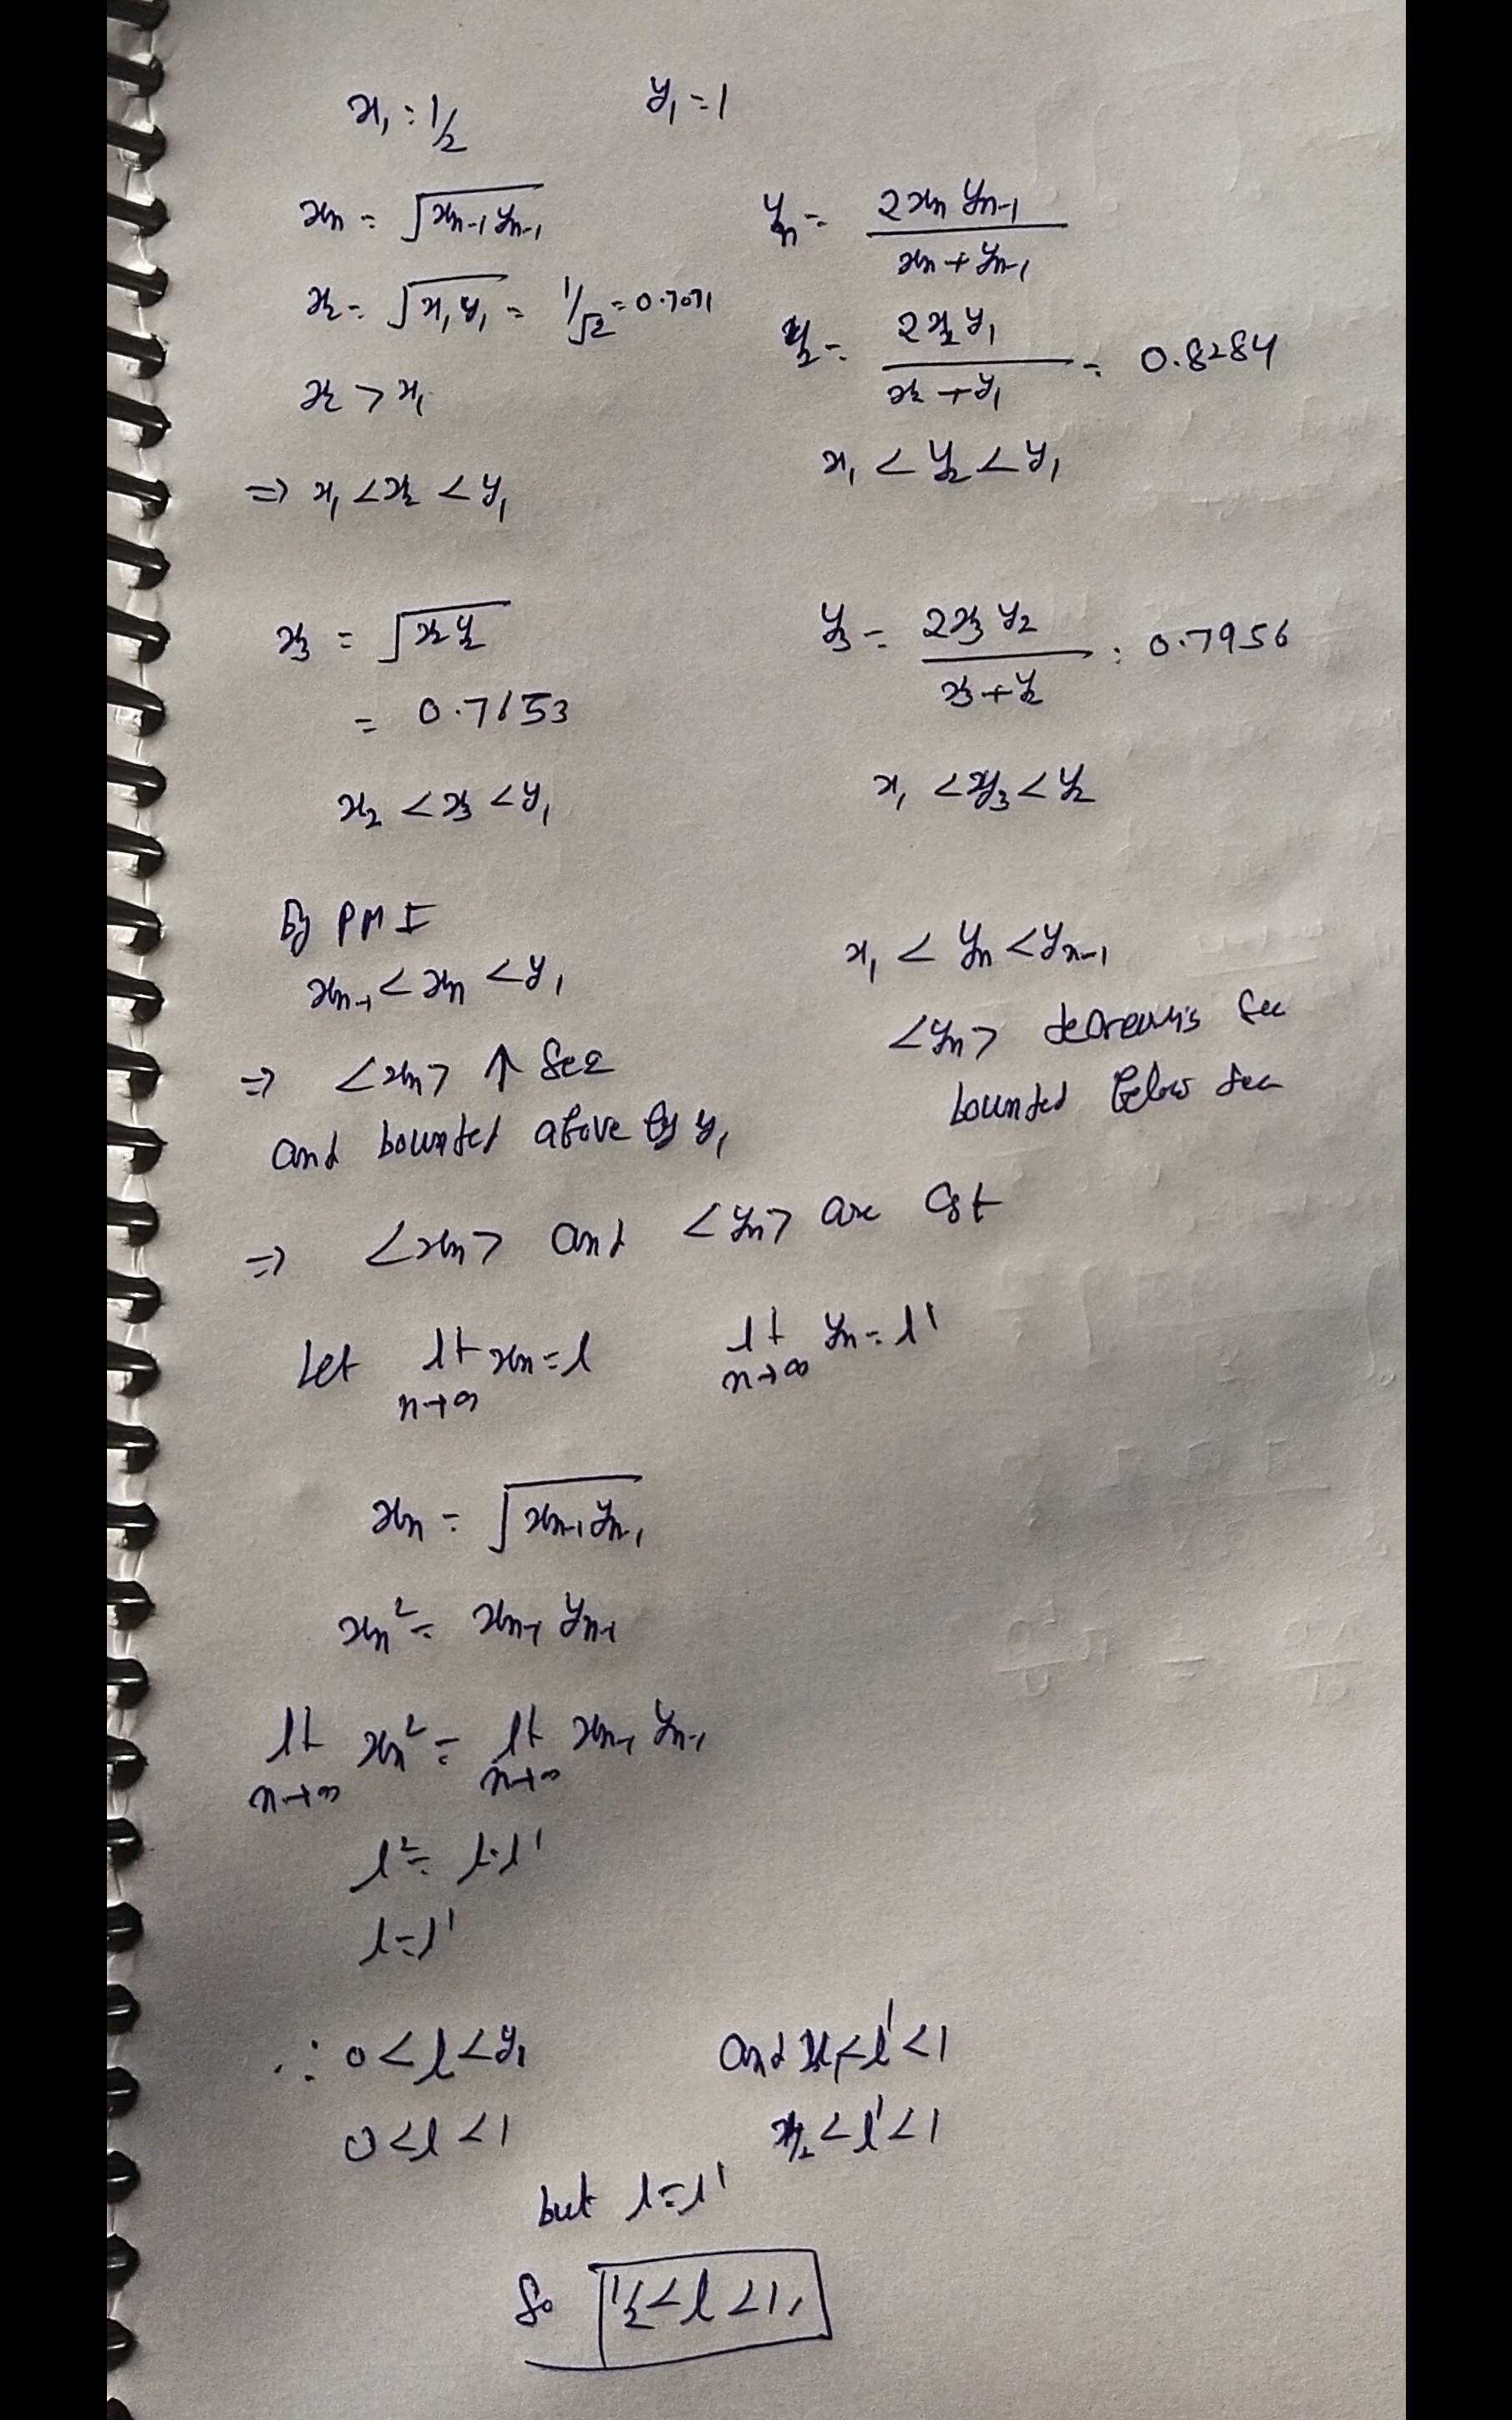 x₁ = 1/2 y₁ = 1
xₙ = √(xₙ₋₁ yₙ₋₁) yₙ = 2xₙ yₙ₋₁ / (xₙ + yₙ₋₁)
x₂ = √(x₁ y₁) = 1/√2 = 0.7071 y₂ = 2x₂ y₁ / (x₂ + y₁) = 0.8284
x₂ > x₁
⇒ x₁ < x₂ < y₁ x₁ < y₂ < y₁
x₃ = √(x₂ y₂) y₃ = 2x₃ y₂ / (x₃ + y₂) : 0.7956
= 0.7653
x₂ < x₃ < y₁ x₁ < y₃ < y₂
By PMI
xₙ₋₁ < xₙ < y₁ x₁ < yₙ < yₙ₋₁
⇒ <xₙ> ↑ See <yₙ> decreasing See
and bounded above by y₁ bounded below See
⇒ <xₙ> and <yₙ> are Cgt
Let lt n→∞ xₙ = l lt n→∞ yₙ = l'
xₙ = √(xₙ₋₁ yₙ₋₁)
xₙ² = xₙ₋₁ yₙ₋₁
lt n→∞ xₙ² = lt n→∞ xₙ₋₁ yₙ₋₁
l² = l·l'
l = l'
∴ 0 < l < y₁ and x₁ < l' < 1
0 < l < 1 1/2 < l' < 1
but l = l'
So 1/2 < l < 1,